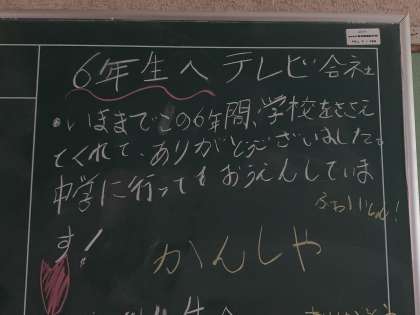 6年生へ テレビ会社
・いままでこの6年間、学校をささえ
てくれて、ありがとうございました。
中学に行ってもおうえんしていま
す！
ふぁいと！
かんしや